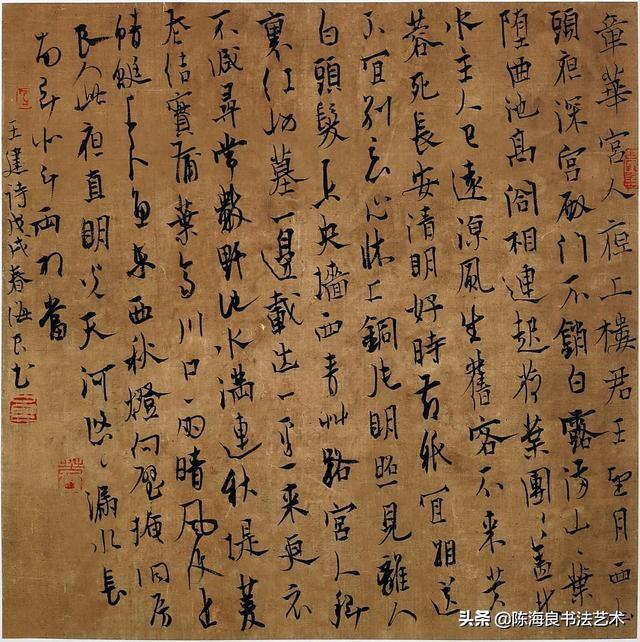 章華宮人夜上樓君王望月西山
頭夜深宮殿門不鎖白露滿山〻葉
墮西池高閣相連起荷葉團〻蓋秋
水主人已遠涼風生舊客不來芙
蓉死長安清明好時節只宜相送
不宜別惡心床上銅片明照見離人
白頭髮未央墻西青草路宮人斜
裏紅妝墓一邊載出一邊來更衣
不減尋常數野池水滿連秋堤菱
花結實蒲葉齊川口雨晴風復止
蜻蜓上下魚東西秋燈向壁掩洞房
良人此夜直明光天河悠〻漏水長
南斗北斗兩相當
王建詩戊戌春海良書
头条 @陈海良书法艺术